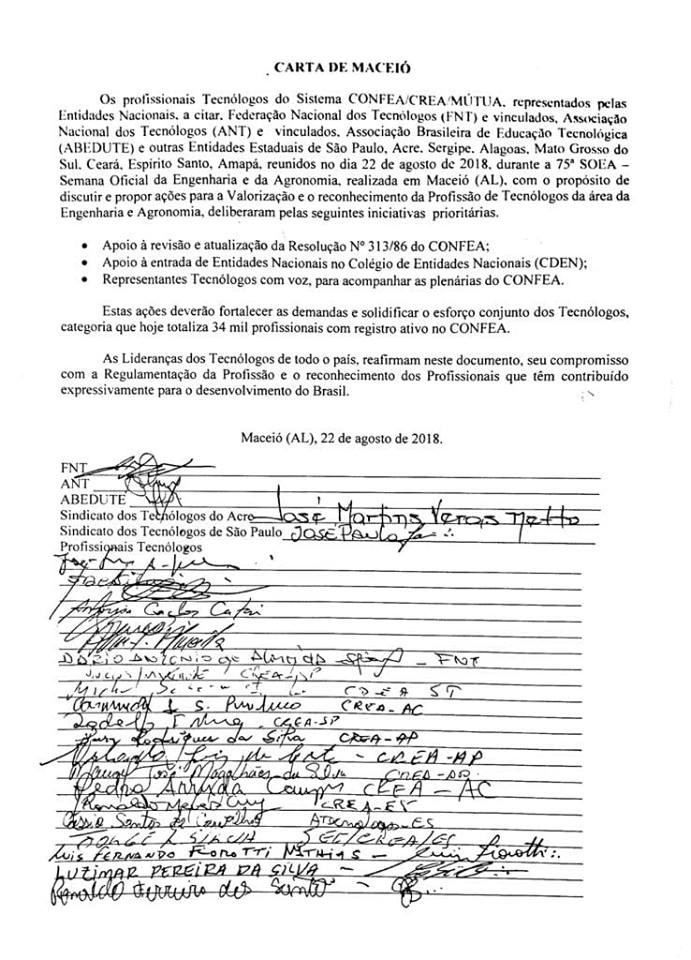 CARTA DE MACEIÓ
Os profissionais Tecnólogos do Sistema CONFEA/CREA/MÚTUA, representados pelas
Entidades Nacionais, a citar, Federação Nacional dos Tecnólogos (FNT) e vinculados, Associação
Nacional dos Tecnólogos (ANT) e vinculados, Associação Brasileira de Educação Tecnológica
(ABEDUTE) e outras Entidades Estaduais de São Paulo, Acre, Sergipe, Alagoas, Mato Grosso do
Sul, Ceará, Espírito Santo, Amapá, reunidos no dia 22 de agosto de 2018, durante a 75ª SOEA –
Semana Oficial da Engenharia e da Agronomia, realizada em Maceió (AL), com o propósito de
discutir e propor ações para a Valorização e o reconhecimento da Profissão de Tecnólogos da área da
Engenharia e Agronomia, deliberaram pelas seguintes iniciativas prioritárias.
• Apoio à revisão e atualização da Resolução Nº 313/86 do CONFEA;
• Apoio à entrada de Entidades Nacionais no Colégio de Entidades Nacionais (CDEN);
• Representantes Tecnólogos com voz, para acompanhar as plenárias do CONFEA.
Estas ações deverão fortalecer as demandas e solidificar o esforço conjunto dos Tecnólogos,
categoria que hoje totaliza 34 mil profissionais com registro ativo no CONFEA.
As Lideranças dos Tecnólogos de todo o país, reafirmam neste documento, seu compromisso
com a Regulamentação da Profissão e o reconhecimento dos Profissionais que têm contribuído
expressivamente para o desenvolvimento do Brasil.
Maceió (AL), 22 de agosto de 2018.
FNT
ANT
ABEDUTE
Sindicato dos Tecnólogos do Acre José Martins Veras Netto
Sindicato dos Tecnólogos de São Paulo JOSÉ PAULO
Profissionais Tecnólogos
Antonio Carlos
DARIO ANTONIO de Almeida - FNT
CREA-SP
CREA-AC
CREA-SP
Rodrigues da Silva CREA-AP
Luiz - CREA-AP
José Magalhães da Silva CREA-AP
Pedro Arruda Campos CREA-AC
Ronaldo CREA-ES
Cassio Santos de Carvalho -ES
/CREA/ES
Luis FERNANDO FIOROTTI MATHIAS - Luis Fiorotti
LUZIMAR PEREIRA DA SILVA -
Ronaldo Ferreira dos Santos -